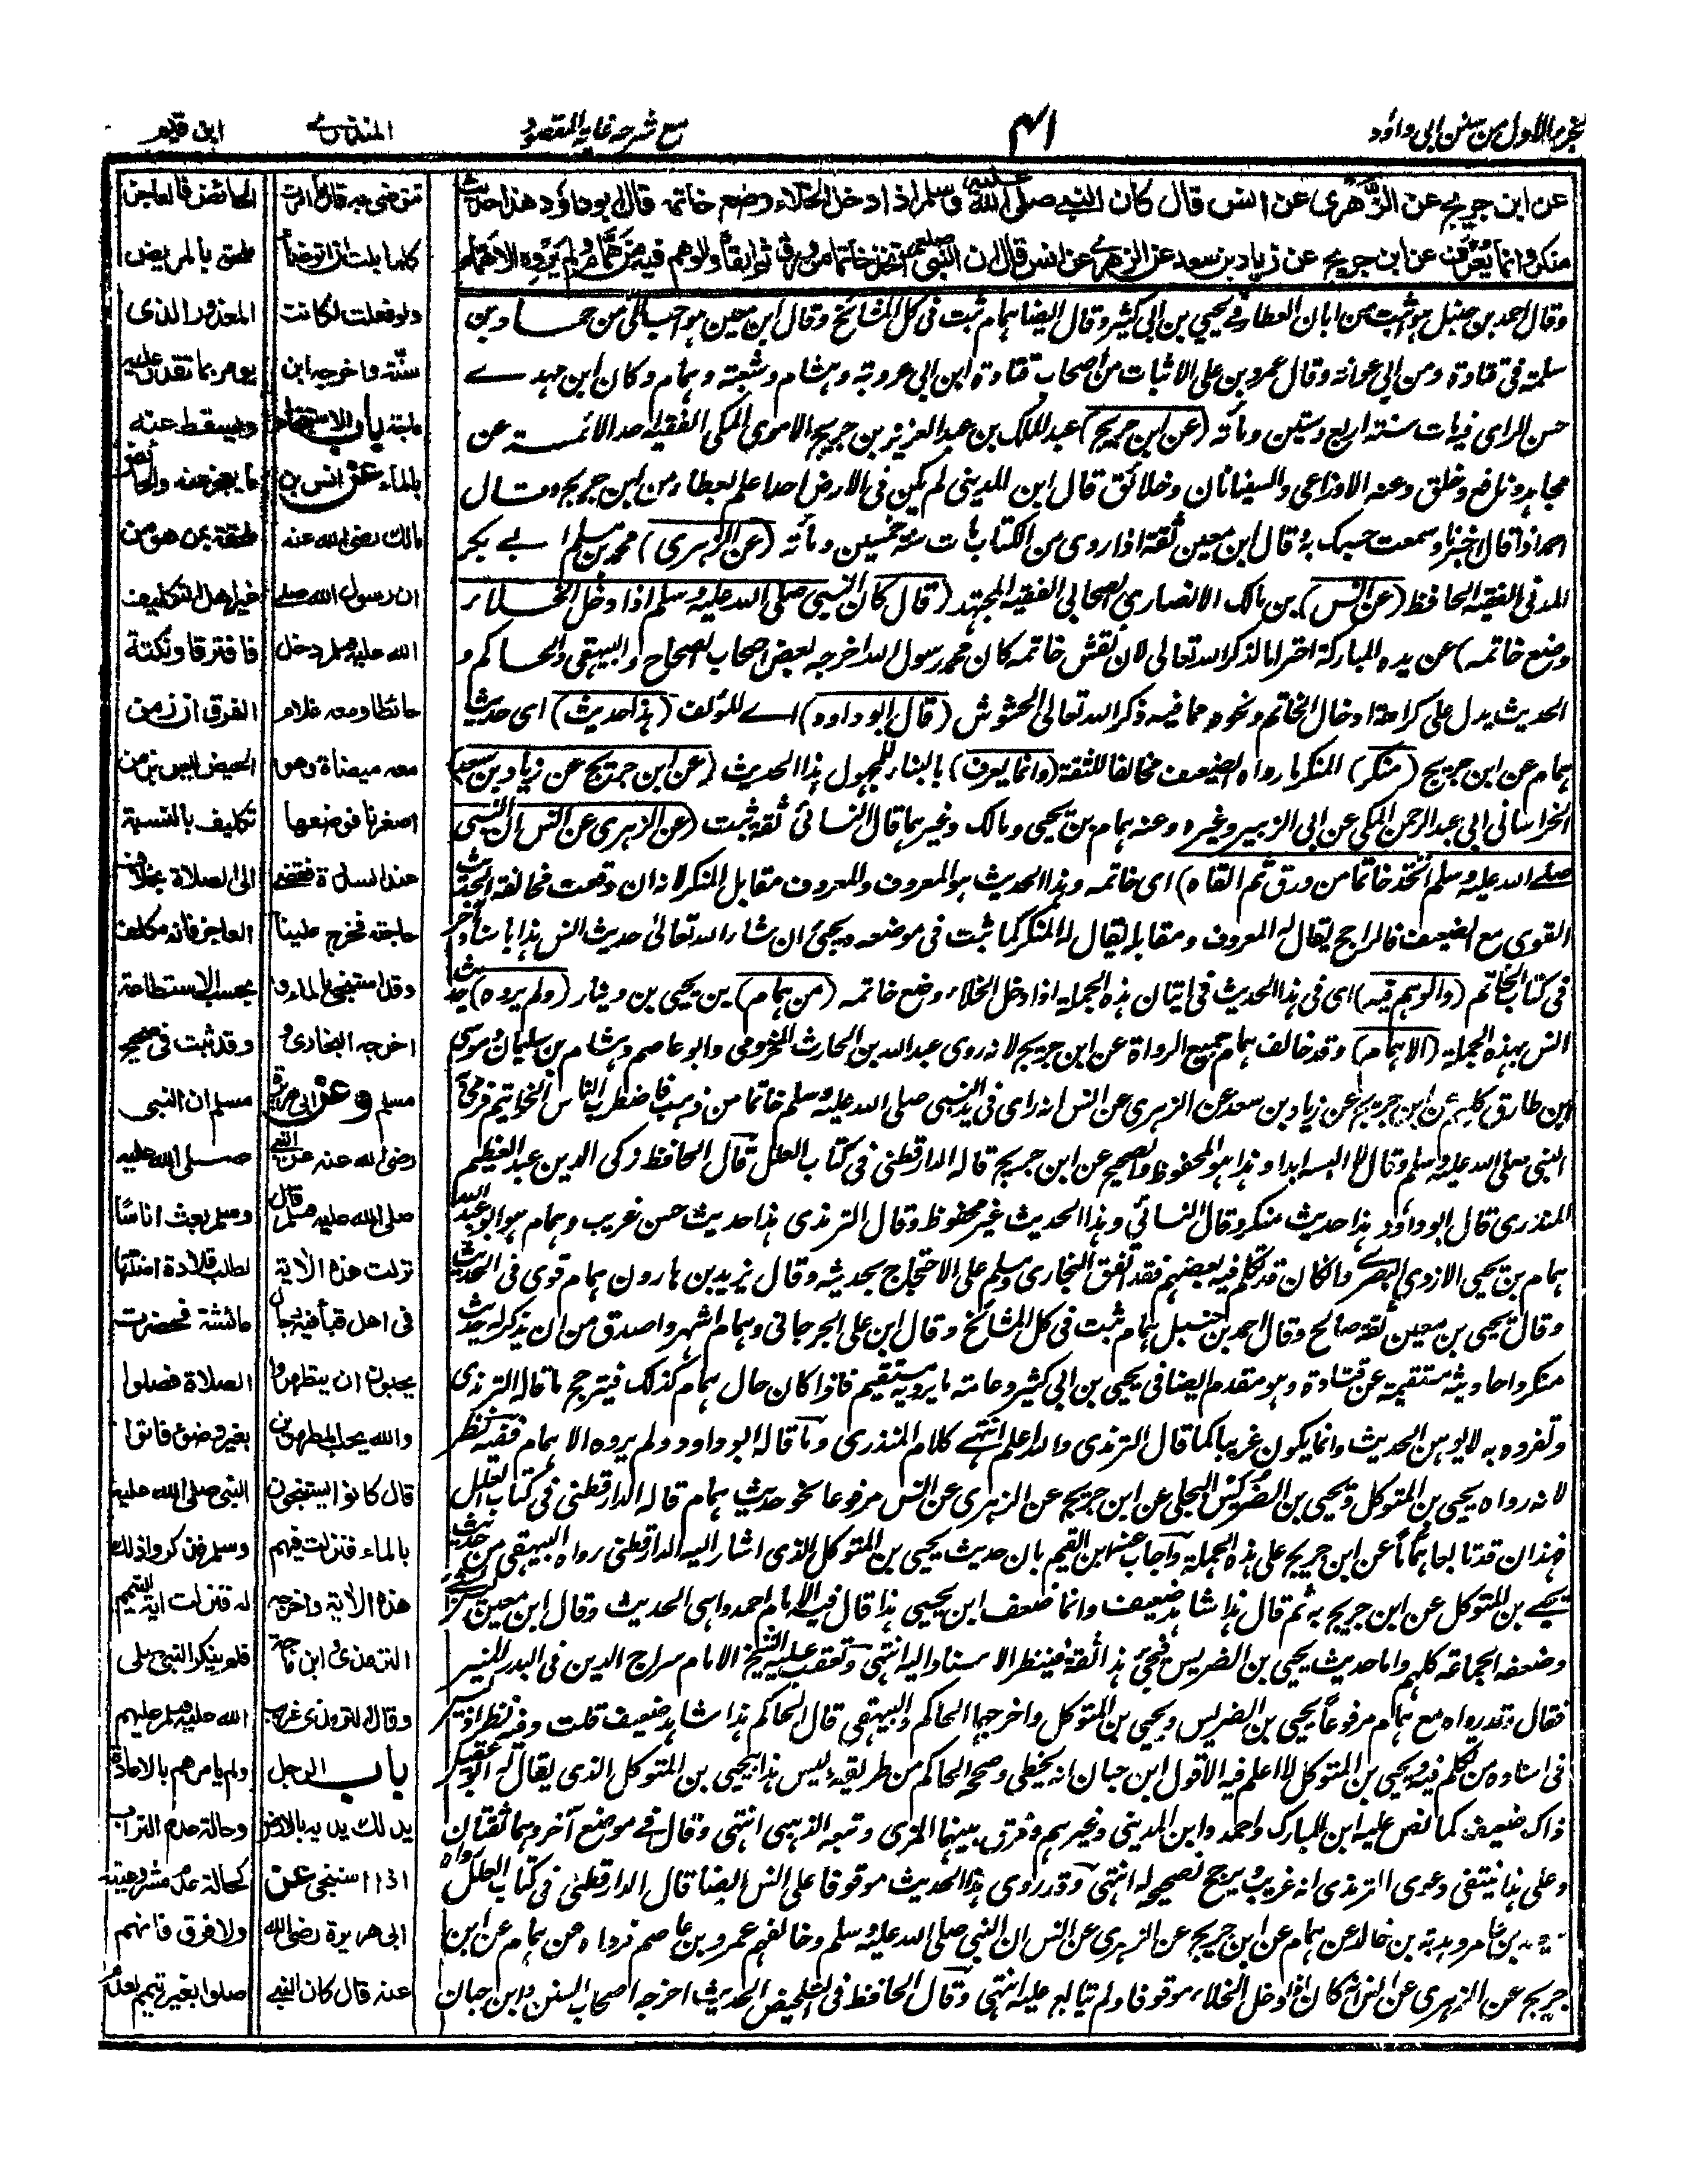 الجزء الاول من سنن ابى داؤد
مع شرحه غاية المقصود
المنذرى
ابن قيم
عن ابن جريج عن الزهرى عن انس قال كان النبى صلى الله عليه وسلم اذا دخل الخلاء وضع خاتمه قال ابو داؤد هذا حديث
منكر وانما يعرف عن ابن جريج عن زياد بن سعد عن الزهرى عن انس قال ان النبى صلعم اتخذ خاتما من ورق ثم القاه والوهم فيه من همام ولم يروه الا همام
وقال احمد بن حنبل هو اثبت من ابان العطار فى يحيى بن ابى كثير وقال ايضا همام ثبت فى كل المشائخ وقال ابن معين هو احب الىّ من حماد بن
سلمة فى قتادة ومن ابى عوانة وقال عمرو بن على الاثبات من اصحاب قتادة ابن ابى عروبة وهشام وشعبة وهمام وكان ابن مهدى
حسن الراى فيه مات سنة اربع وستين ومأته (عن ابن جريج) عبد الملك بن عبد العزيز بن جريج الاموى المكى الفقيه احد الائمة عن
مجاهد ونافع وخلق وعنه الاوزاعى والسفيانان وخلائق قال ابن المدينى لم يكن فى الارض احد اعلم بعطاء من ابن جريج وقال
احمد اذا قال اخبرنا وسمعت حسبك به قال ابن معين ثقة اذا روى من الكتاب مات سنة خمسين ومأته (عن الزهرى) محمد بن مسلم ابى بكر
المدنى الفقيه الحافظ (عن انس) بن مالك الانصارى الصحابى الفقيه المجتهد (قال كان النبى صلى الله عليه وسلم اذا دخل الخلاء
وضع خاتمه) عن يده المباركة احتراما لذكر الله تعالى لان نقش خاتمه كان محمد رسول الله اخرجه بعض اصحاب الصحاح والبيهقى والحاكم و
الحديث يدل على كراهة ادخال الخاتم ونحوه مما فيه ذكر الله تعالى الحشوش (قال ابو داود) اے المؤلف (هذا حديث) اى حديث
همام عن ابن جريج (منكر) المنكر ما رواه الضعيف مخالفا للثقة (وانما يعرف) بالبناء للمجهول هذا الحديث (عن ابن جريج عن زياد بن سعد)
الخراسانى ابى عبد الرحمن المكى عن ابى الزبير وغيره وعنه همام بن يحيى ومالك وغيرهما قال النسائى ثقة ثبت (عن الزهرى عن انس ان النبى
صلے الله عليه وسلم اتخذ خاتما من ورق ثم القاه) اى خاتمه وهذا الحديث هو المعروف والمعروف مقابل المنكر لانه ان وقعت مخالفة الحديث
القوى مع الضعيف فالراجح يقال له المعروف ومقابله يقال له المنكر كما ثبت فى موضعه ويجئ ان شاء الله تعالى حديث انس هذا باسناد آخر
فى كتاب الخاتم (والوهم فيه) اى فى هذا الحديث فى اتيان هذه الجملة اذا دخل الخلاء وضع خاتمه (من همام) بن يحيى بن دينار (ولم يروه) حديث
انس بهذه الجملة (الا همام) وقد خالف همام جميع الرواة عن ابن جريج لانه روى عبد الله بن الحارث المخزومى وابو عاصم وهشام بن سليمان وموسى
ابن طارق كلهم عن ابن جريج عن زياد بن سعد عن الزهرى عن انس انه راى فى يد النبى صلى الله عليه وسلم خاتما من ذهب فاضطرب الناس الخواتيم فرمى به
النبى صلى الله عليه وسلم وقال لا البسه ابدا وهذا هو المحفوظ والصحيح عن ابن جريج قاله الدارقطنى فى كتاب العلل قال الحافظ زكى الدين عبد العظيم
المنذرى قال ابو داؤد هذا حديث منكر وقال النسائى وهذا الحديث غير محفوظ وقال الترمذى هذا حديث حسن غريب وهمام هو ابو عبد الله
همام بن يحيى الازدى البصرى وان كان قد تكلم فيه بعضهم فقد اتفق البخارى ومسلم على الاحتجاج بحديثه وقال يزيد بن هارون همام قوى فى الحديث
وقال يحيى بن معين ثقة صالح وقال احمد بن حنبل همام ثبت فى كل المشائخ وقال ابن على الجرجانى وهمام اشهر واصدق من ان يذكر له حديث
منكر واحاديثه مستقيمة عن قتادة وهو مقدم ايضا فى يحيى بن ابى كثير وعامة ما يرويه مستقيم فاذا كان حال همام كذلك فيترجح ما قاله الترمذى
وتفرده به لا يوهن الحديث وانما يكون غريبا كما قال الترمذى والله اعلم انتهے كلام المنذرى وما قاله ابو داود ولم يروه الا همام ففيه نظر
لانه رواه يحيى بن المتوكل ويحيى بن الضريس البجلى عن ابن جريج عن الزهرى عن انس مرفوعا نحو حديث همام قاله الدارقطنى فى كتاب العلل
فهذان قد تابعا هماما عن ابن جريج على هذه الجملة واجاب عنه ابن القيم بان حديث يحيى بن المتوكل الذى اشار اليه الدارقطنى رواه البيهقى من حديث
يحيے بن المتوكل عن ابن جريج به ثم قال هذا شاهد ضعيف وانما ضعف ابن يحيى هذا قال فيه الامام احمد واهى الحديث وقال ابن معين ليس بشئ
وضعفه الجماعة كلهم واما حديث يحيى بن الضريس فيحيى هذا ثقة فينظر الاسناد اليه انتهى وتعقب عليه الشيخ الامام سراج الدين فى البدر المنير
فقال وقد رواه مع همام مرفوعاً يحيى بن الضريس ويحيى بن المتوكل واخرجها الحاكم والبيهقى قال الحاكم هذا شاهد ضعيف قلت وفيه نظر اذ ليس
فى اسناده من تكلم فيه ويحيى بن المتوكل لا اعلم فيه الا قول ابن حبان انه يخطى وصححه الحاكم من طريقه وليس هذا بيحيى بن المتوكل الذى يقال له ابو عقيل
ذاك ضعيف كما نص عليه ابن المبارك واحمد وابن المدينى وغيرهم وفرق بينهما المزى وتبعه الذهبى انتهى وقال فے موضع آخر وهما ثقتان
وعلى هذا ينتفى دعوى الترمذى انه غريب ويرجح تصحيحه له انتهى وقد روى هذا الحديث موقوفا على انس ايضا قال الدارقطنى فى كتاب العلل رواه
بن عامر وهدبة بن خالد عن همام عن ابن جريج عن الزهرى عن انس ان النبى صلى الله عليه وسلم وخالفهم عمرو بن عاصم فرواه عن همام عن ابن
جريج عن الزهرى عن انس انه كان اذا دخل الخلاء موقوفا ولم يتابع عليه انتهى وقال الحافظ فى التلخيص الحديث اخرجه اصحاب السنن وابن حبان
توضى به قال ما امرت
كلما بلت ان اتوضأ
ولو فعلت لكانت
سنّة واخرجه ابن
ماجة باب الاستنجاء
بالماء عن انس بن
مالك رضى الله عنه
ان رسول الله صلى
الله عليه وسلم دخل
حائطا ومعه غلام
معه ميضاة وهو
اصغرنا فوضعها
عند السدرة فقضى
حاجته فخرج علينا
وقد استنجى بالماء و
اخرجه البخارى و
مسلم وعن ابى هريرة
رضى الله عنه عن النبى
صلى الله عليه وسلم قال
نزلت هذه الاية
فى اهل قبأ فيه رجال
يحبون ان يتطهروا
والله يحب المطهرين
قال كانوا يستنجون
بالماء فنزلت فيهم
هذه الاية واخرجه
الترمذى وابن ماجة
وقال الترمذى غريب
باب الرجل
يدلك يده بالارض
اذا استنجى عن
ابى هريرة رضى الله
عنه قال كان النبى
الحائض فالعاجز
ملحق بالمريض
المعذور الذى
يومر بما تقدر عليه
ويسقط عنه
ما يعجز عنه والحائض
ملحقة بمن هو من
غير اهل التكليف
فافترقا ونكتة
الفرق ان زمن
الحيض ليس بزمن
تكليف بالنسبة
الى الصلاة بخلاف
العاجز فانه مكلف
بحسب الاستطاعة
وقد ثبت فى صحيح
مسلم ان النبى
صلى الله عليه
وسلم بعث اناسًا
لطلب قلادة اضلتها
عائشة فحضرت
الصلاة فصلوا
بغير وضوء فاتوا
النبى صلى الله عليه
وسلم فذكروا ذلك
له فنزلت اية التيمم
فلم ينكر النبى صلى
الله عليه وسلم عليهم
ولم يامرهم بالاعادة
وحالة عدم التراب
كحالة عدم مشروعيته
ولا فرق فانهم
صلوا بغير تيمم لعدم